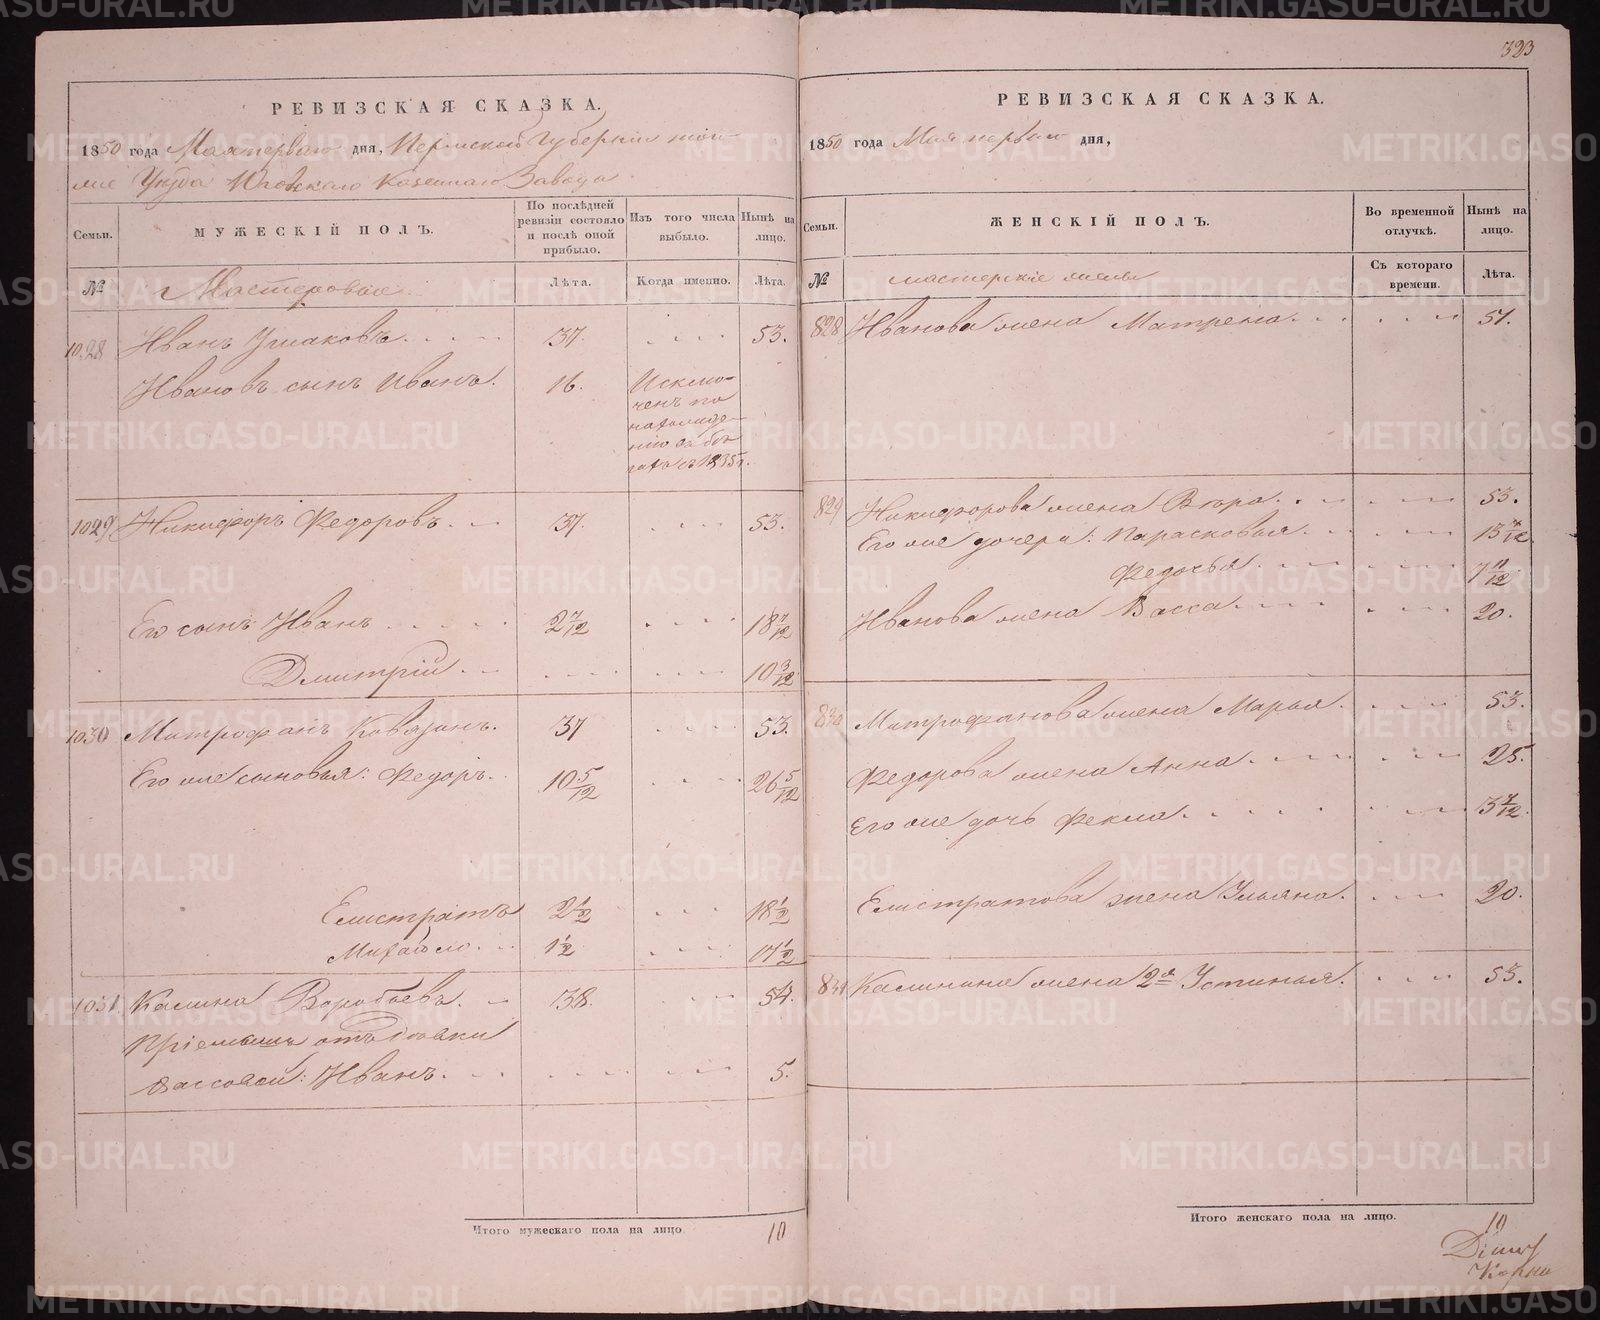 323
РЕВИЗСКАЯ СКАЗКА.
1850 года Мая перваго дня, Пермской Губернiи той
же Уезда Юговскаго Казеннаго Завода
Семьи.
МУЖЕСКІЙ ПОЛЪ.
По послѣдней ревизіи состояло и послѣ оной прибыло.
Изъ того числа выбыло.
Нынѣ на лицо.
№
Мастеровые
Лѣта.
Когда именно.
Лѣта.
1028 Иванъ Ушаковъ 37. 53.
Ивановъ сынъ Иванъ. 16. Исклю-
ченъ по
нахожде-
нію въ бѣ-
гахъ съ 1835 г.
1029 Никифоръ Федоровъ 37. 53.
Его сынъ Иванъ 2 7/12 18 7/12
Дмитрій 10 3/12
1030 Митрофанъ Ковязинъ. 37 53.
Его же сыновья: Федоръ. 10 5/12 26 5/12
Елистратъ 2 1/2 18 1/2
Михайло 1 1/2 17 1/2
1031. Калина Воробьевъ. 38. 54.
Пріемышъ отъ
Иванъ. 5.
Итого мужескаго пола на лицо. 10
РЕВИЗСКАЯ СКАЗКА.
1850 года Мая перваго дня,
Семьи.
ЖЕНСКІЙ ПОЛЪ.
Во временной отлучкѣ.
Нынѣ на лицо.
№
мастерскіе жены
Съ котораго времени.
Лѣта.
828 Иванова жена Матрена. 51.
829 Никифорова жена Вѣра. 53.
Его же дочери: Парасковья. 13 7/12
Федосья. 7 11/12
Иванова жена Васса 20.
830 Митрофанова жена Марья 53.
Федорова жена Анна 25.
Его же дочь Фекла. 3 7/12
Елистратова жена Ульяна. 20.
831 Калинина жена 2я Устинья. 53.
Итого женскаго пола на лицо. 10
METRIKI.GASO-URAL.RU